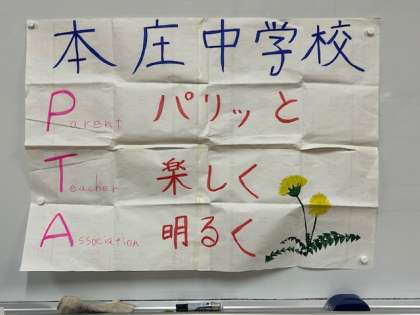 本庄中学校
Parent パリッと
Teacher 楽しく
Association 明るく